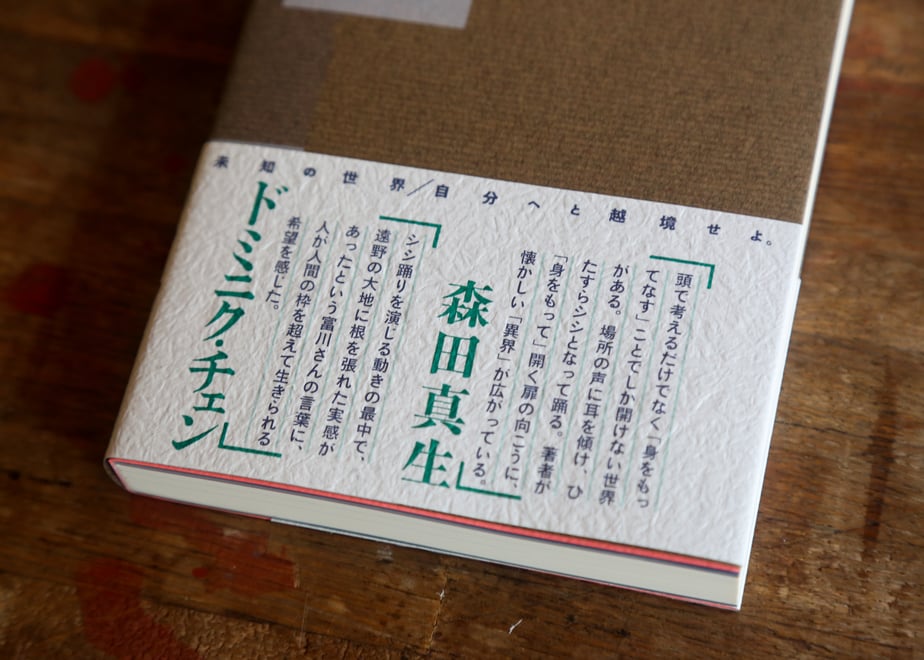 未知の世界/自分へと越境せよ。
頭で考えるだけでなく「身をもっ
てなす」ことでしか開けない世界
がある。場所の声に耳を傾け、ひ
たすらシシとなって踊る。著者が
「身をもって」開く扉の向こうに、
懐かしい「異界」が広がっている。
森田真生
シシ踊りを演じる動きの最中で、
遠野の大地に根を張れた実感が
あったという富川さんの言葉に、
人が人間の枠を超えて生きられる
希望を感じた。
ドミニク・チェン